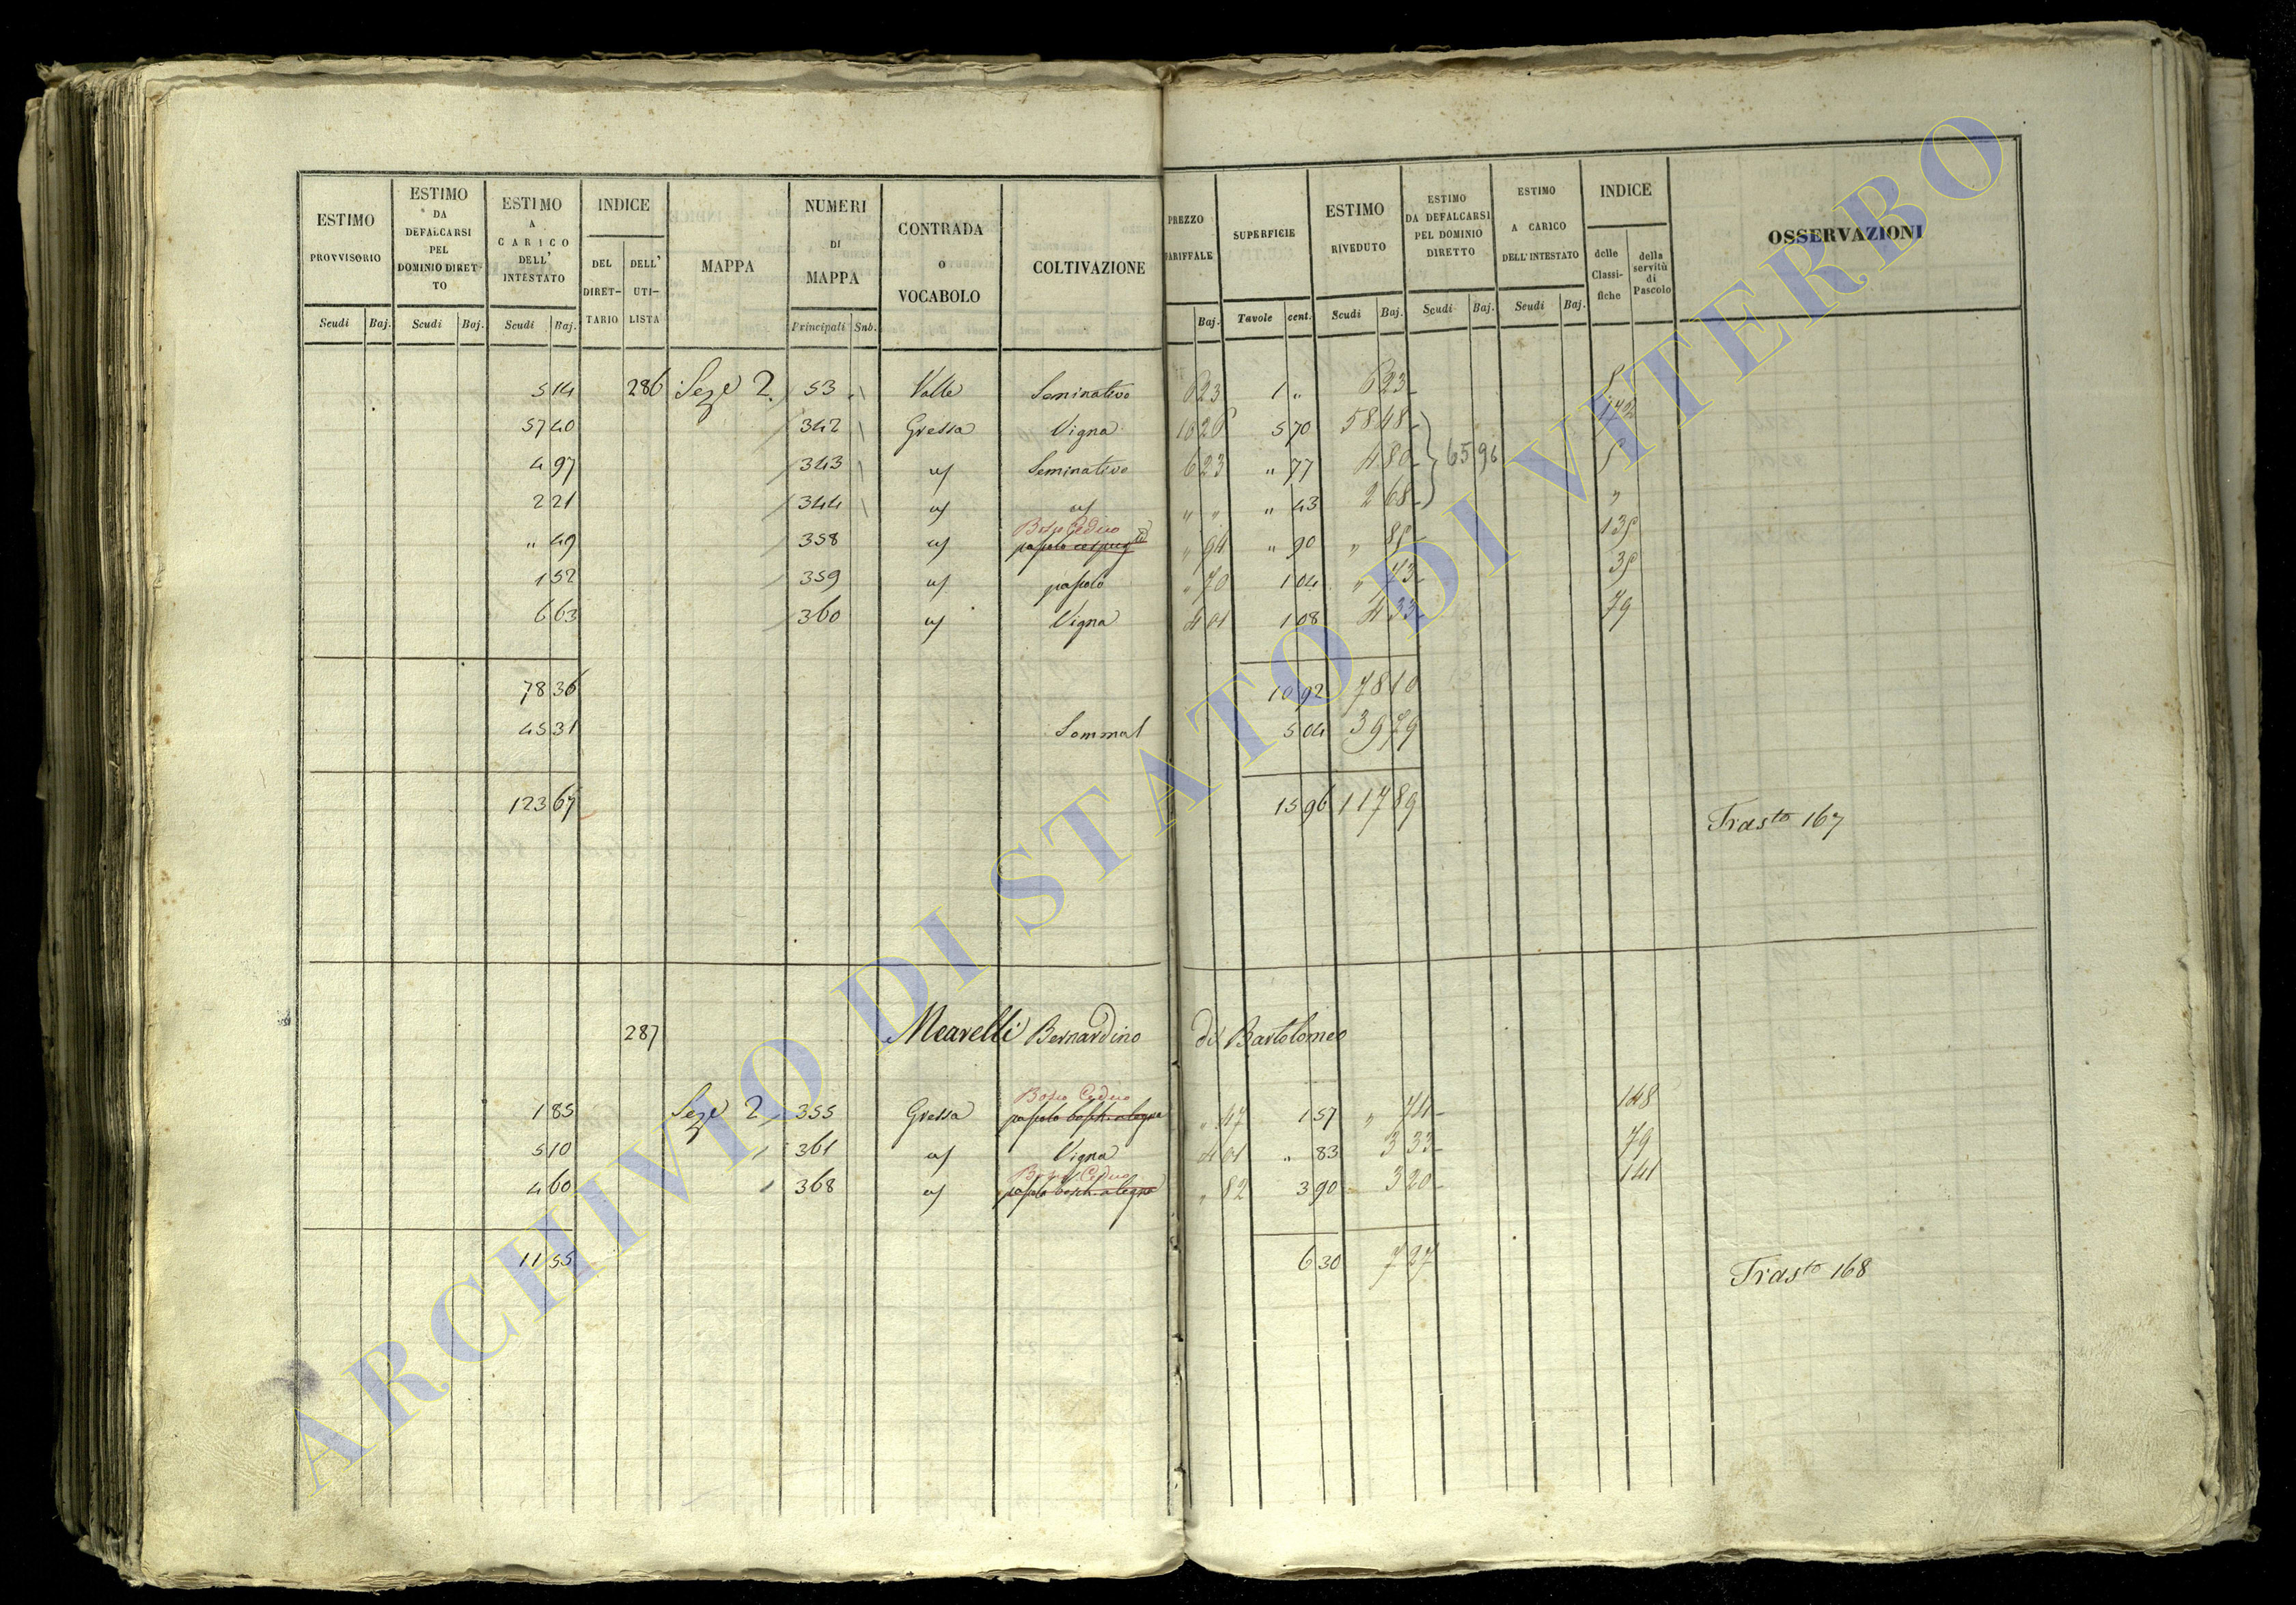 ESTIMO PROVVISORIO
ESTIMO DA DEFALCARSI PEL DOMINIO DIRET-TO
ESTIMO A CARICO DELL' INTESTATO
INDICE
DEL DIRET-TARIO
DELL' UTI-LISTA
MAPPA
NUMERI DI MAPPA
CONTRADA o VOCABOLO
COLTIVAZIONE
PREZZO TARIFFALE
SUPERFICIE
ESTIMO RIVEDUTO
ESTIMO DA DEFALCARSI PEL DOMINIO DIRETTO
ESTIMO A CARICO DELL'INTESTATO
INDICE
delle Classi-fiche
della servitù di Pascolo
OSSERVAZIONI
Scudi Baj. Scudi Baj. Scudi Baj. Principali Sub. Baj. Tavole cent. Scudi Baj. Scudi Baj. Scudi Baj.
5 14 286 Seze 2 53 Valle Seminativo 6 23 1 " 6 23
57 40 342 Gressa Vigna 10 26 5 70 58 48
4 97 343 Seminativo 6 23 " 77 4 80 65 96
2 21 344 " " " 43 2 68 "
Bosco Ceduo
" 49 358 " 94 " 90 "
1 52 359 pascolo " 70 1 04 " 73
6 63 360 Vigna 4 01 1 08 4 33 79
78 36 10 92 78 10
45 31 Somma 5 04 39 79
123 67 15 96 117 89
Trasto 167
287 Mearelli Bernardino di Bartolomeo
Bosco Ceduo
1 85 Seze 2 355 Gressa " 47 1 57 " 74 148
5 10 361 Vigna 4 01 " 83 3 33 79
Bosco Ceduo
4 60 368 " 82 3 90 3 20 141
11 55 6 30 7 27
Trasto 168
ARCHIVIO DI STATO DI VITERBO